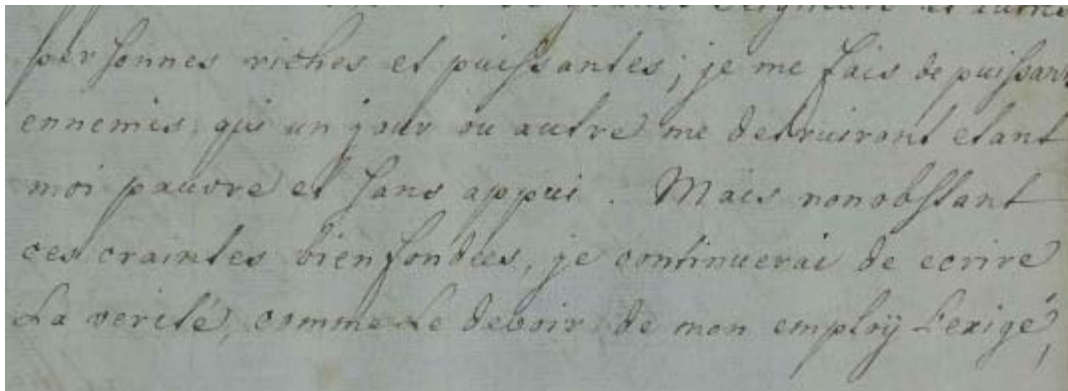 personnes riches et puissantes; je me fais de puissans
ennemis, qui un jour ou autre me detruiront etant
moi pauvre et sans appui. Mais nonobstant
ces craintes bien fondées, je continuerai de ecrire
La verité, comme Le devoir de mon employ L'exigé,